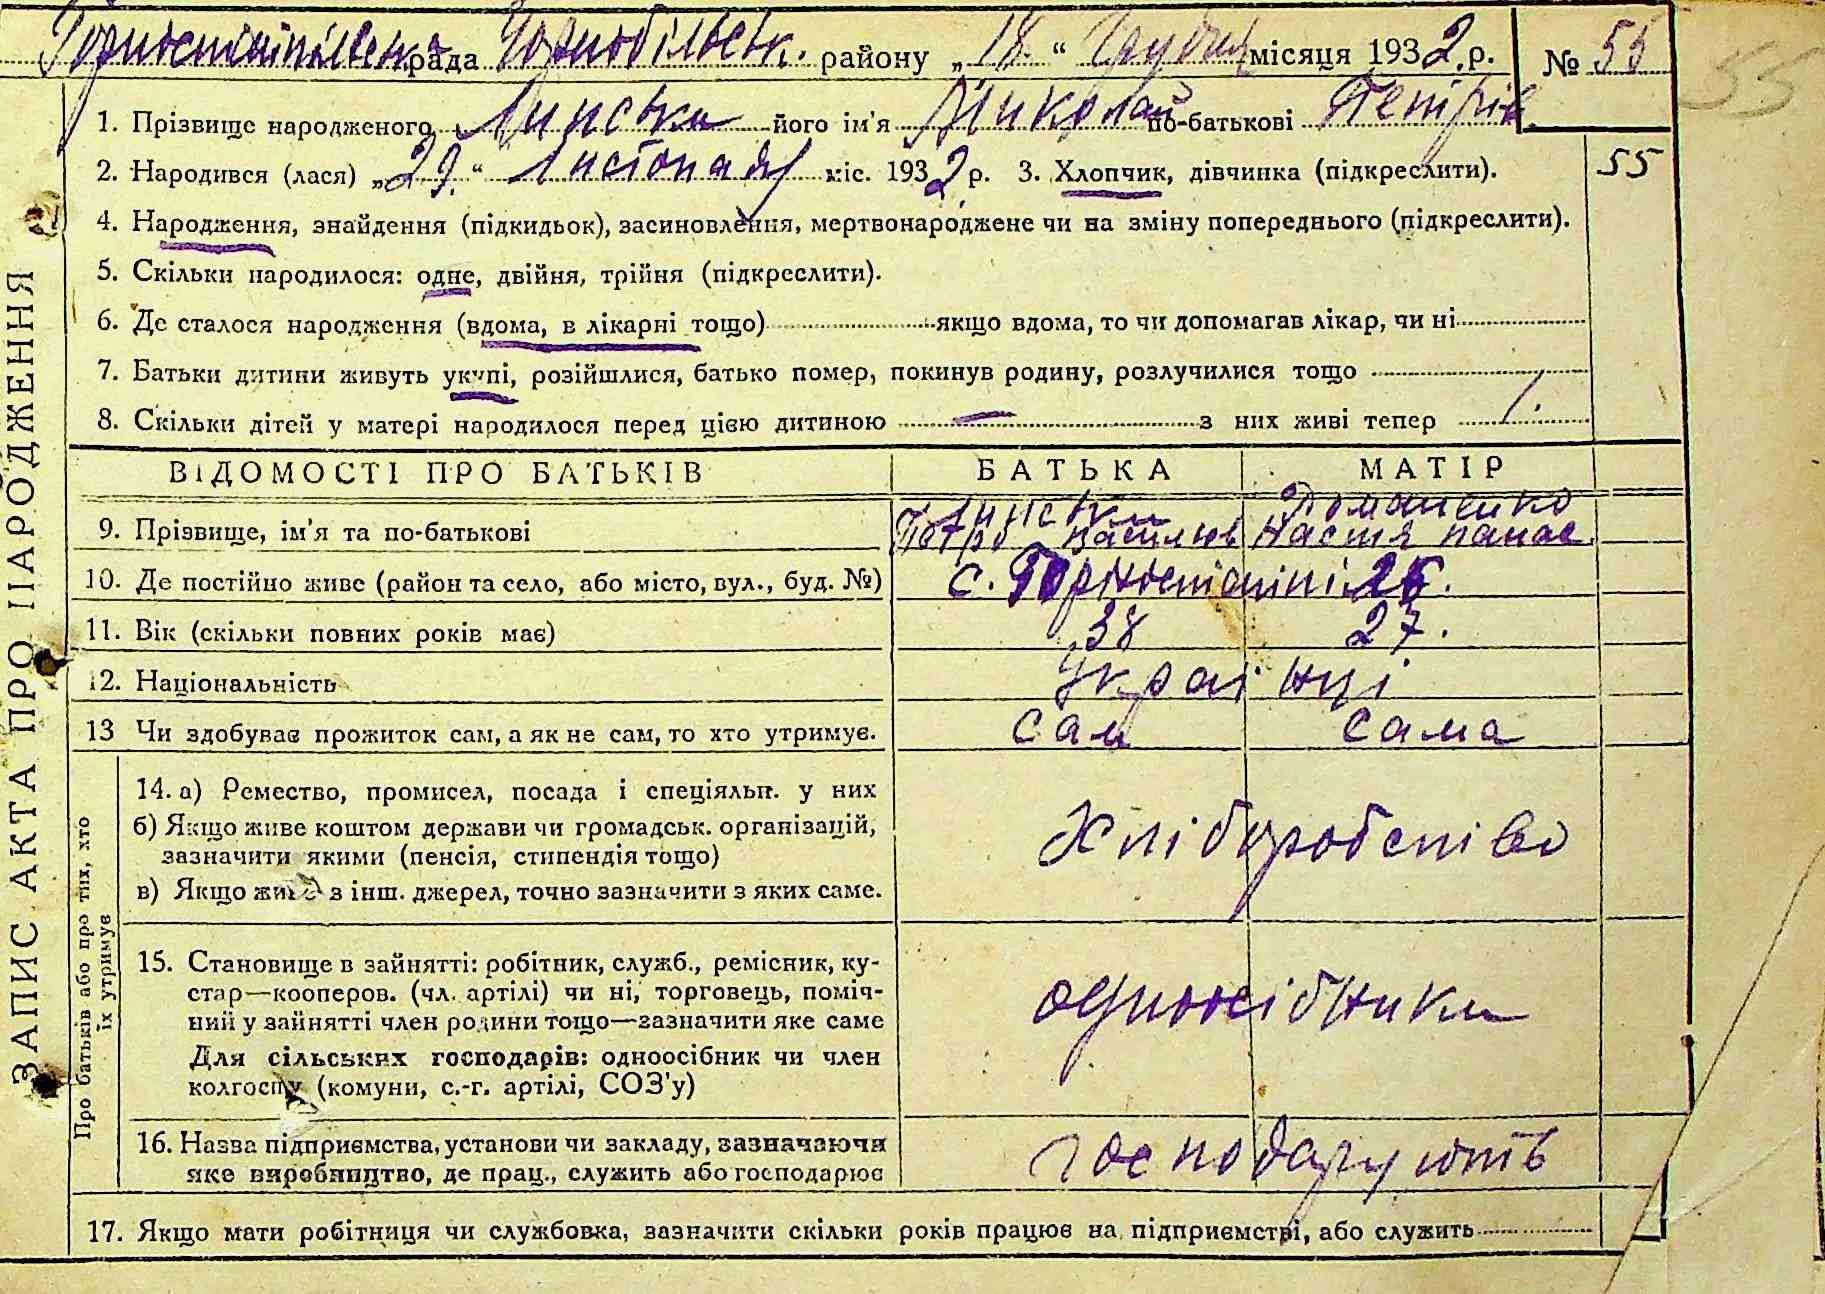 Горностайпільська рада Чорнобільськ. району „18.“ Грудня місяця 1932.р. № 55
55
1. Прізвище народженого Липськи його ім'я Миколай по-батькові Петрів
2. Народився (лася) „29.“ Листопада міс. 1932 р. 3. Хлопчик, дівчинка (підкреслити).
55
4. Народження, знайдення (підкидьок), засиновлення, мертвонароджене чи на зміну попереднього (підкреслити).
5. Скільки народилося: одне, двійня, трійня (підкреслити).
6. Де сталося народження (вдома, в лікарні тощо) якщо вдома, то чи допомагав лікар, чи ні
7. Батьки дитини живуть укупі, розійшлися, батько помер, покинув родину, розлучилися тощо
8. Скільки дітей у матері народилося перед цією дитиною — з них живі тепер 1.
ВІДОМОСТІ ПРО БАТЬКІВ БАТЬКА МАТІР
Липськи Романенко
9. Прізвище, ім'я та по-батькові Петро Василів Настя Панас
10. Де постійно живе (район та село, або місто, вул., буд. №) с.
11. Вік (скільки повних років має) 38 27.
12. Національність Українці
13 Чи здобуває прожиток сам, а як не сам, то хто утримує. сам сама
14. а) Ремество, промисел, посада і спеціяльн. у них
б) Якщо живе коштом держави чи громадськ. організацій,
зазначити якими (пенсія, стипендія тощо)
Хліборобство
в) Якщо живе з інш. джерел, точно зазначити з яких саме.
15. Становище в зайнятті: робітник, служб., ремісник, ку-
стар—кооперов. (чл. артілі) чи ні, торговець, поміч-
ний у зайнятті член родини тощо—зазначити яке саме
одноосібники
Для сільських господарів: одноосібник чи член
колгоспу (комуни, с.-г. артілі, СОЗ'у)
16. Назва підприємства, установи чи закладу, зазначаючи
яке виробництво, де прац., служить або господарює
господарують
17. Якщо мати робітниця чи службовка, зазначити скільки років працює на підприємстві, або служить
ЗАПИС АКТА ПРО НАРОДЖЕННЯ
Про батьків або про тих, хто
їх утримує